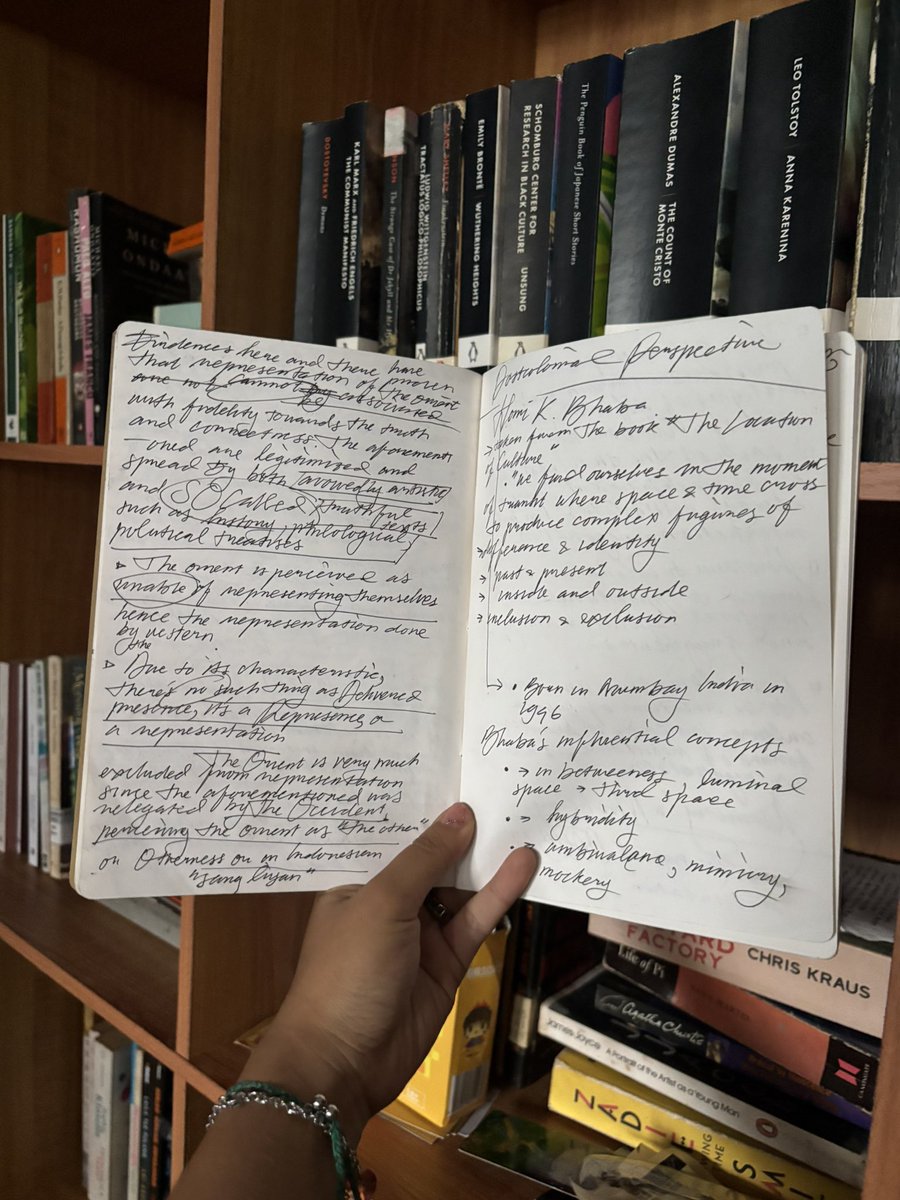 Evidences here and there have
that representation of the proven
orient
are not cannot be associated
with fidelity towards the truth
and correctness. The aforementi
-oned are legitimized and
spread by both avowedly artistic
and SO Called truthful
texts
such as history, philological,
political treatises
The orient is perceived as
unable of representing themselves
hence the representation done
by western
the
Due to its characteristic,
there's no such thing as Delivered
presence, it's a Represence, or
a representation
The Orient is very much
excluded from representation
since the aforementioned was
relegated by the Occident,
perceiving the orient as "the other"
or Otherness or in Indonesian
"sang liyan"
Postcolonial Perspective
Homi K. Bhaba
→ taken from the book "The Location
of Culture"
"we find ourselves in the moment
of transit where space & time cross
to produce complex figures of
difference & identity
→ past & present
→ inside and outside
→ inclusion & exclusion
→ • Born in Mumbay India in
Bhaba's influential concepts
• → in betweeness luminal
space → third space
• → hybridity
• → ambivalence, mimicry,
mockery
DOSTOYEVSKY Demons
KARL MARX and FRIEDRICH ENGELS
THE COMMUNIST MANIFESTO
The Strange Case of Dr Jekyll and Mr
LUDWIG WITTGENSTEIN
TRACTATUS LOGICO-PHILOSOPHICUS
EMILY BRONTË WUTHERING HEIGHTS
SCHOMBURG CENTER FOR
RESEARCH IN BLACK CULTURE UNSUNG
The Penguin Book of Japanese Short Stories
ALEXANDRE DUMAS THE COUNT OF
MONTE CRISTO
LEO TOLSTOY ANNA KARENINA
ONDAA
FACTORY CHRIS KRAUS
Life of Pi
Agatha Christie
James Joyce A Portrait of the Artist as a Young Man
ZADIE SMI